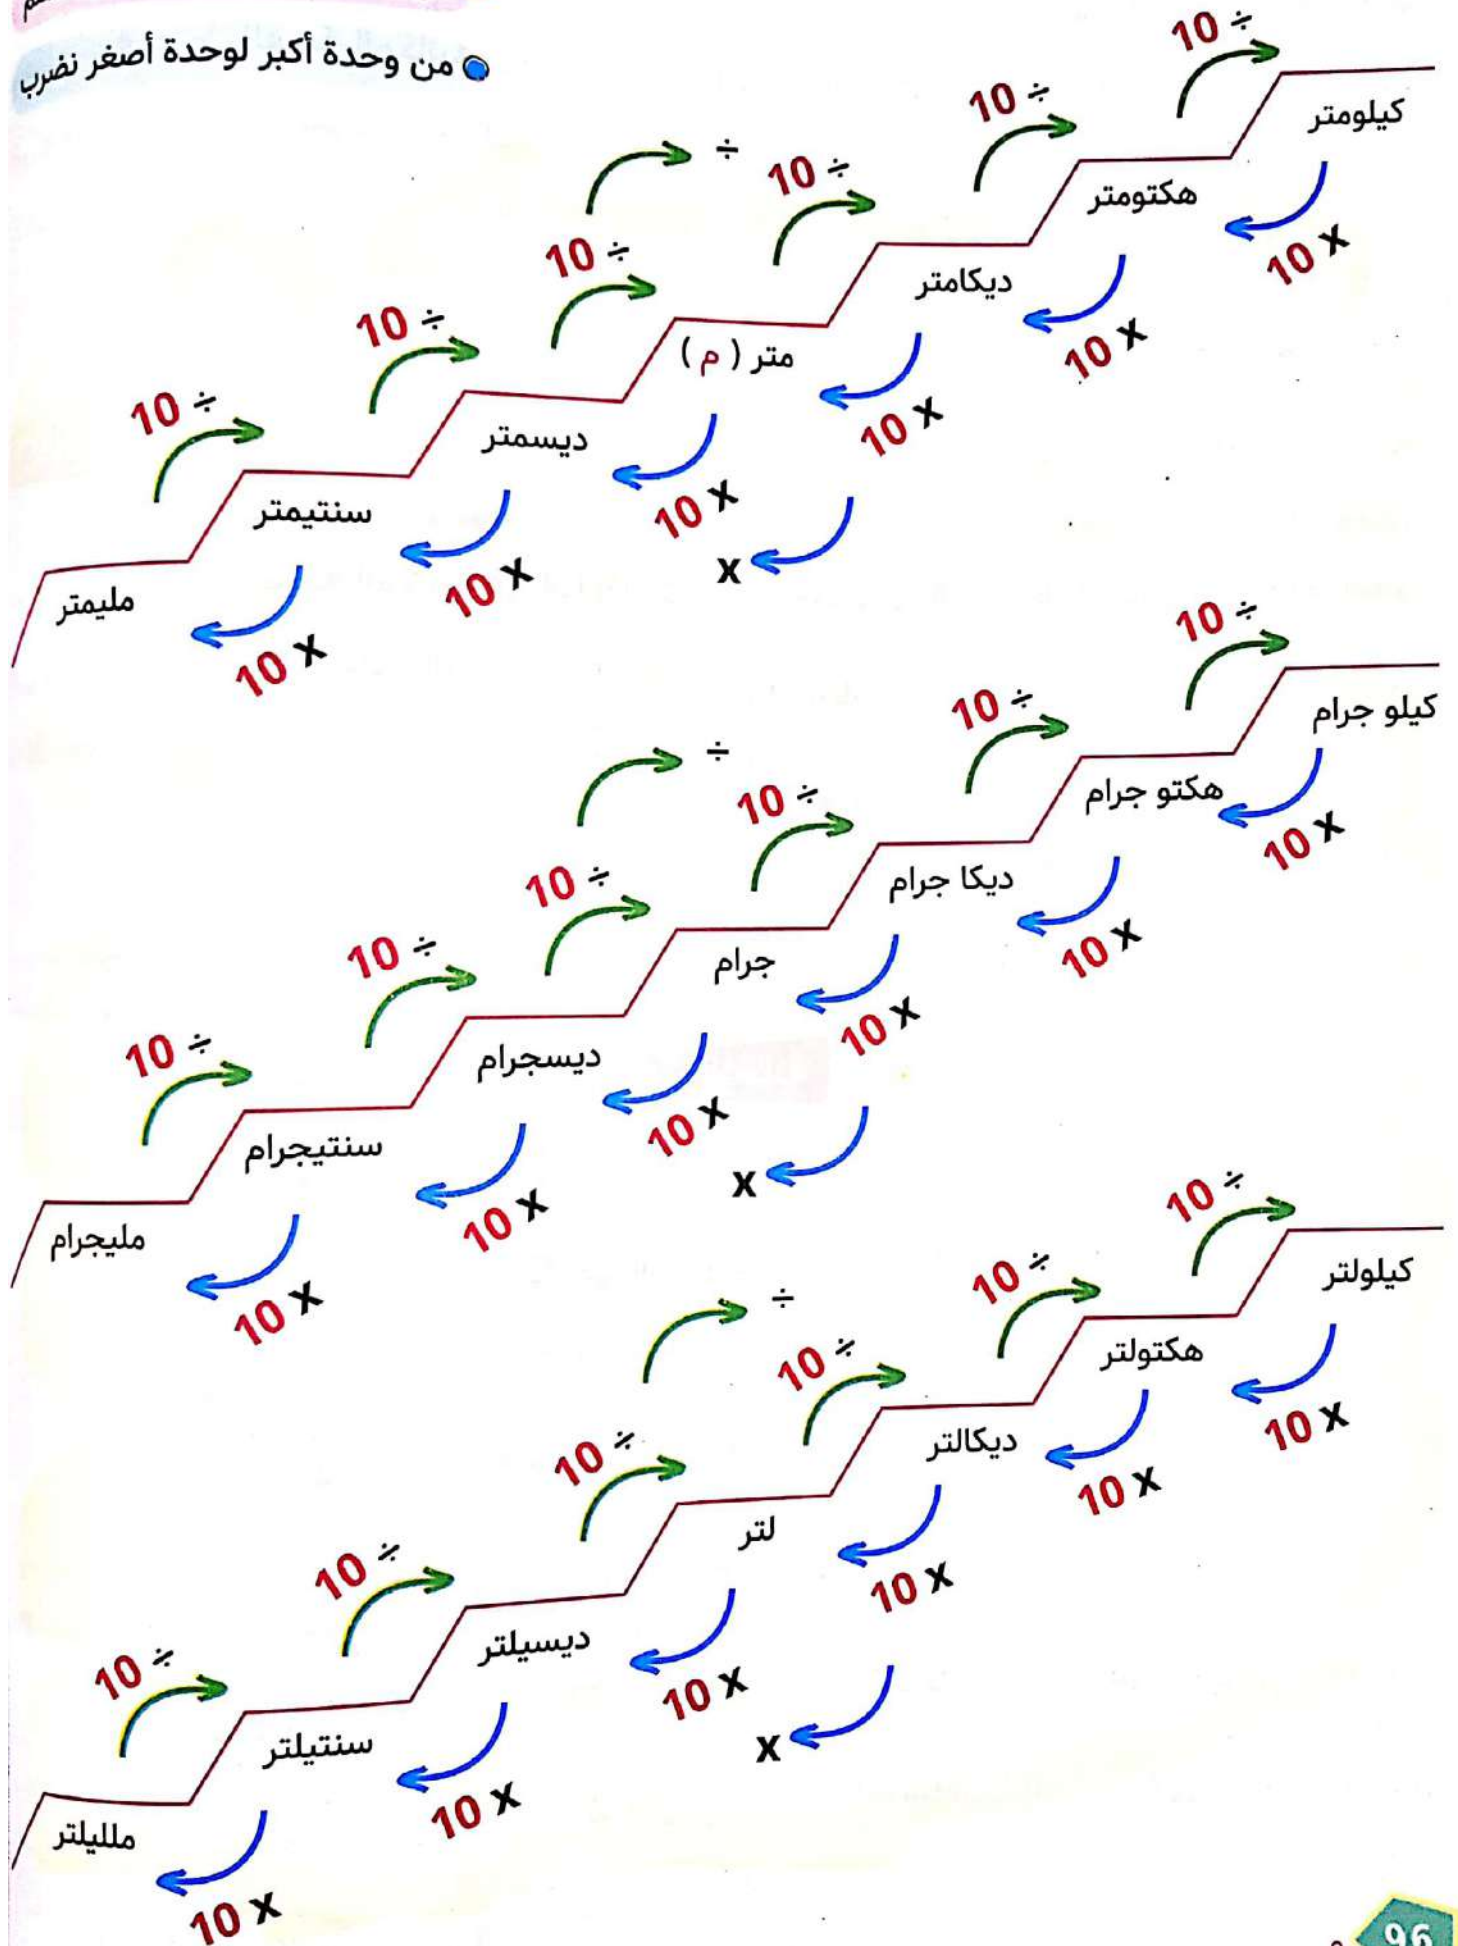 من وحدة أكبر لوحدة أصغر نضرب
10 ÷
كيلومتر
10 x
10 ÷
هكتومتر
10 x
10 ÷
ديكامتر
10 x
÷
10 ÷
متر ( م )
10 x
x
10 ÷
ديسمتر
10 x
10 ÷
سنتيمتر
10 x
مليمتر
10 ÷
كيلو جرام
10 x
10 ÷
هكتو جرام
10 x
10 ÷
ديكا جرام
10 x
÷
10 ÷
جرام
10 x
x
10 ÷
ديسجرام
10 x
10 ÷
سنتيجرام
10 x
مليجرام
10 ÷
كيلولتر
10 x
10 ÷
هكتولتر
10 x
10 ÷
ديكالتر
10 x
÷
10 ÷
لتر
10 x
x
10 ÷
ديسيلتر
10 x
10 ÷
سنتيلتر
10 x
ملليلتر
96